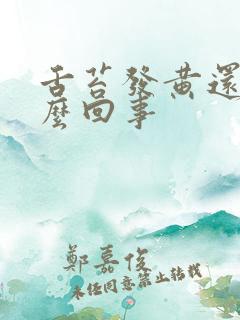 舌苔發黃還
麼回事
鄭嘉俊
未經同意禁止轉載